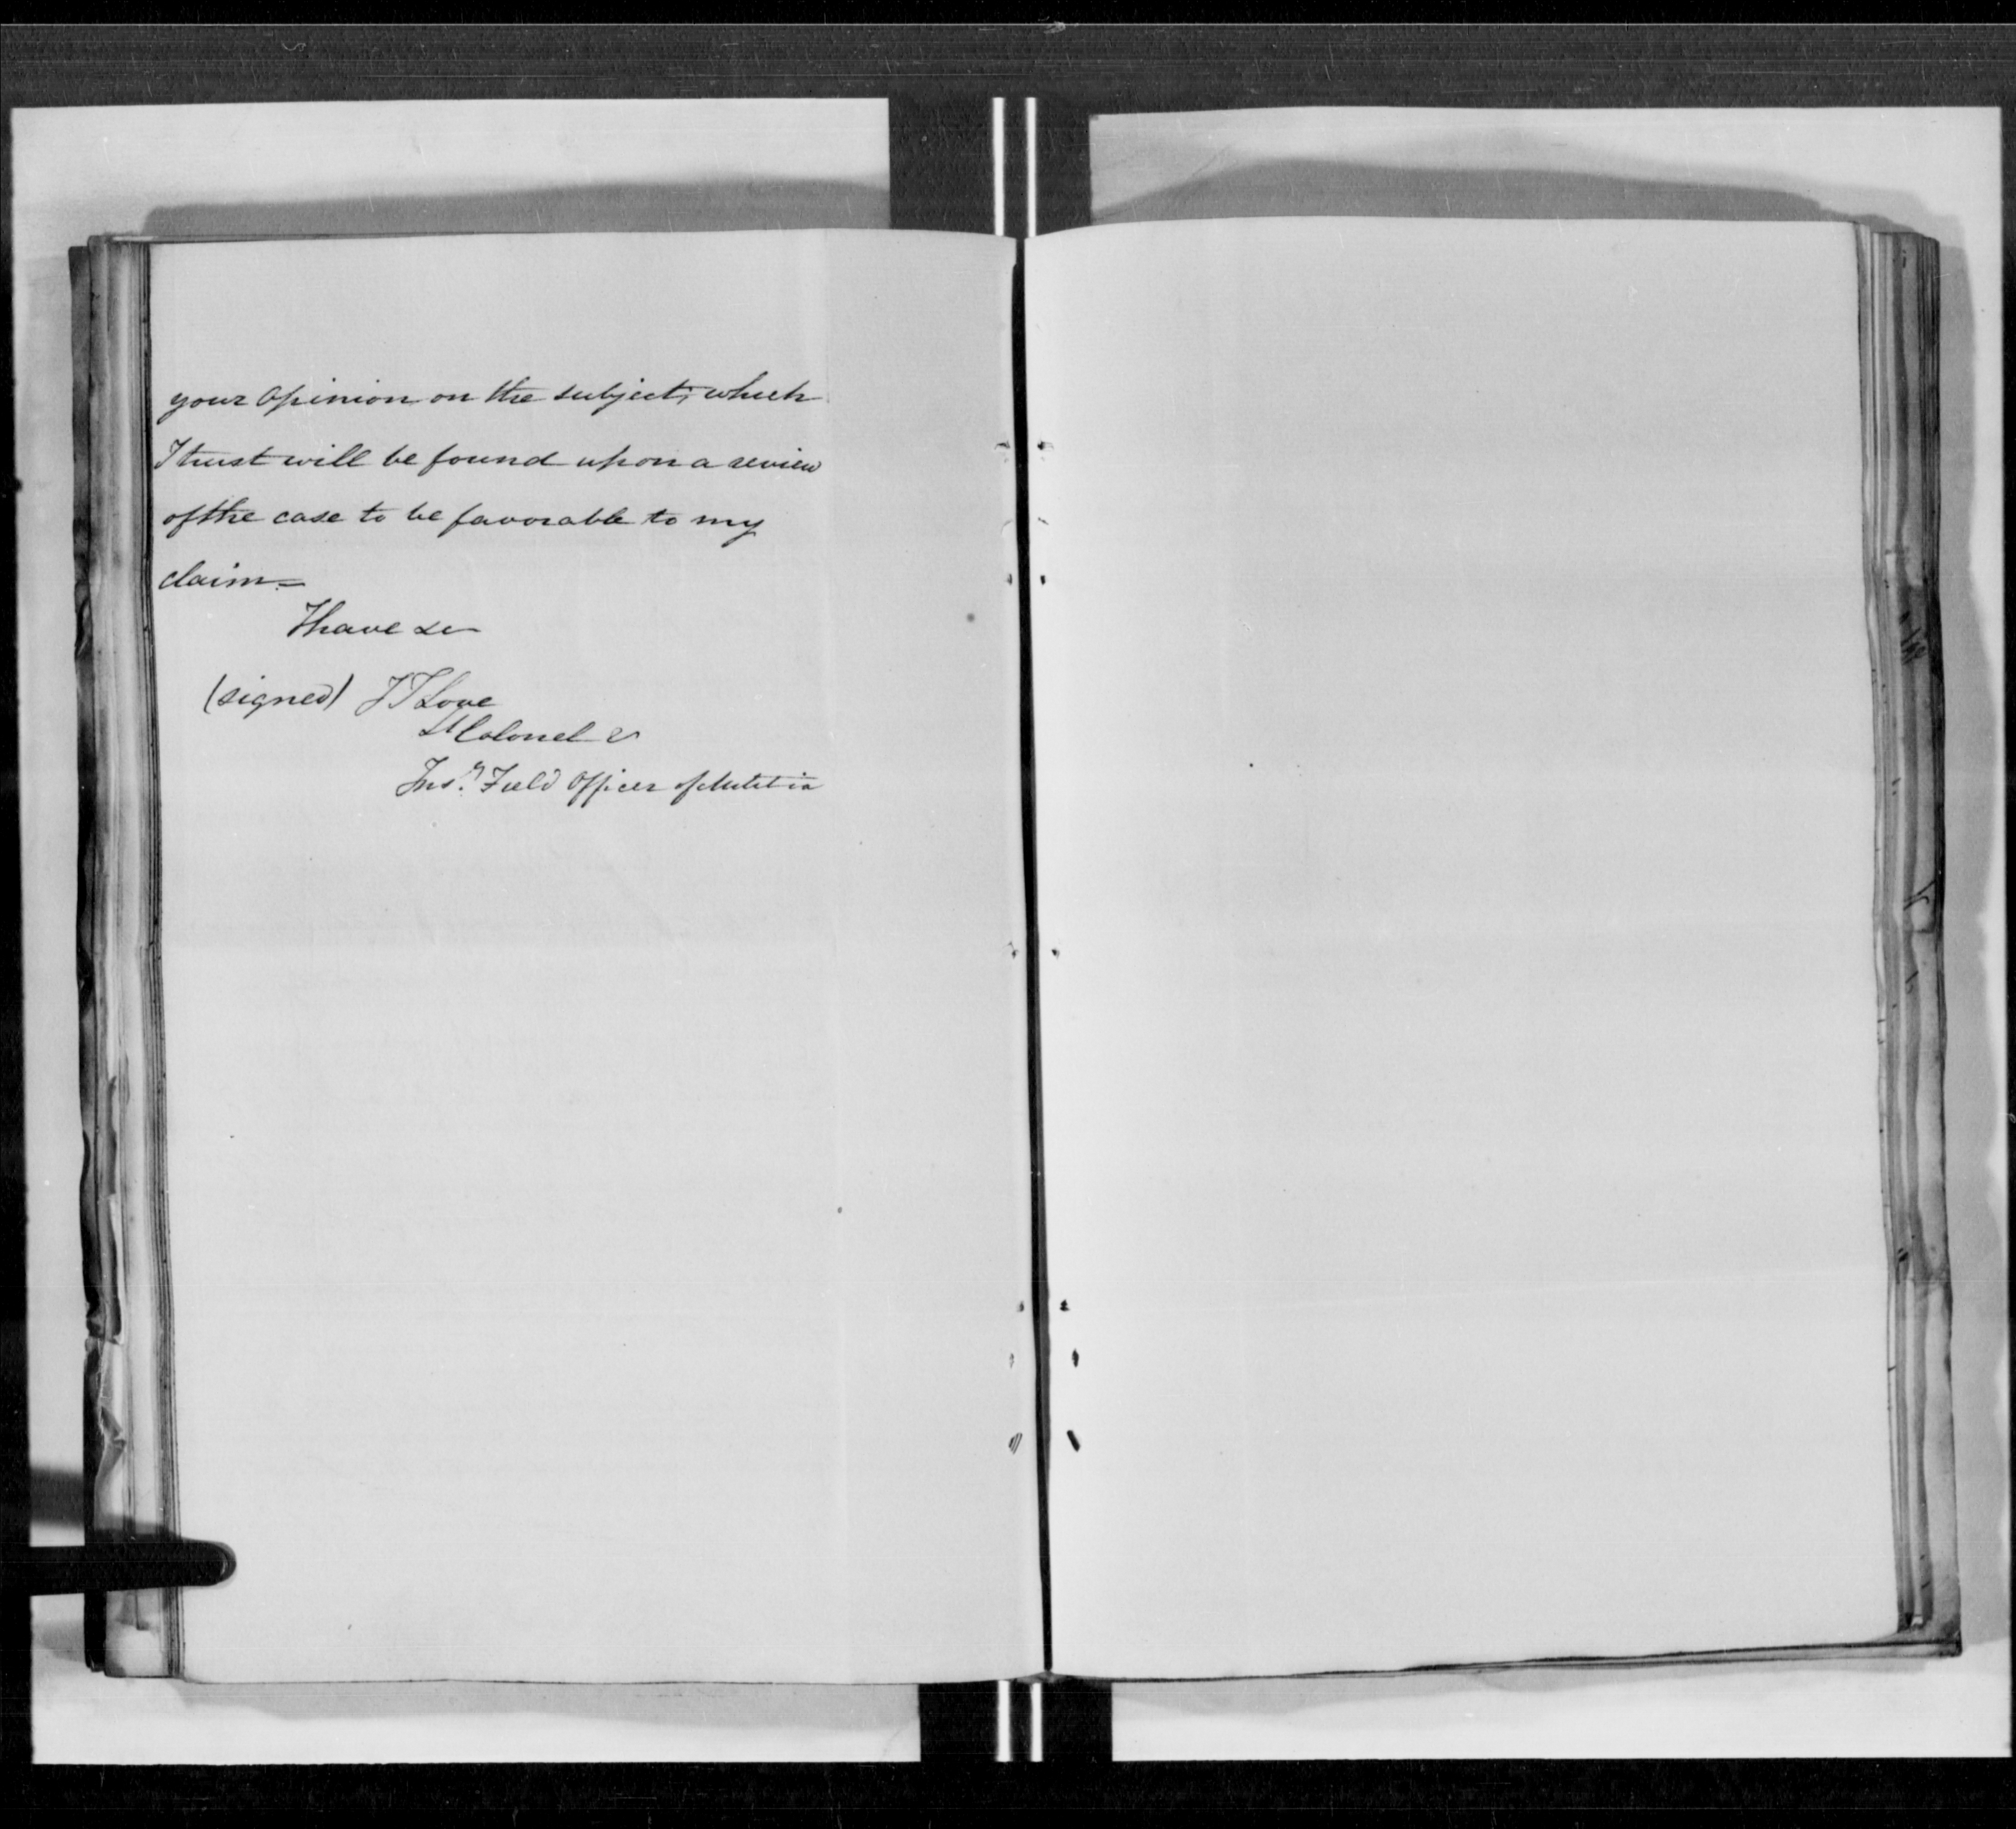 your Opinion on the subject, which
I trust will be found upon a review
of the case to be favorable to my
claim =
I have &c
(signed) J T Love
Lt Colonel &
Insg Field Officer of Militia